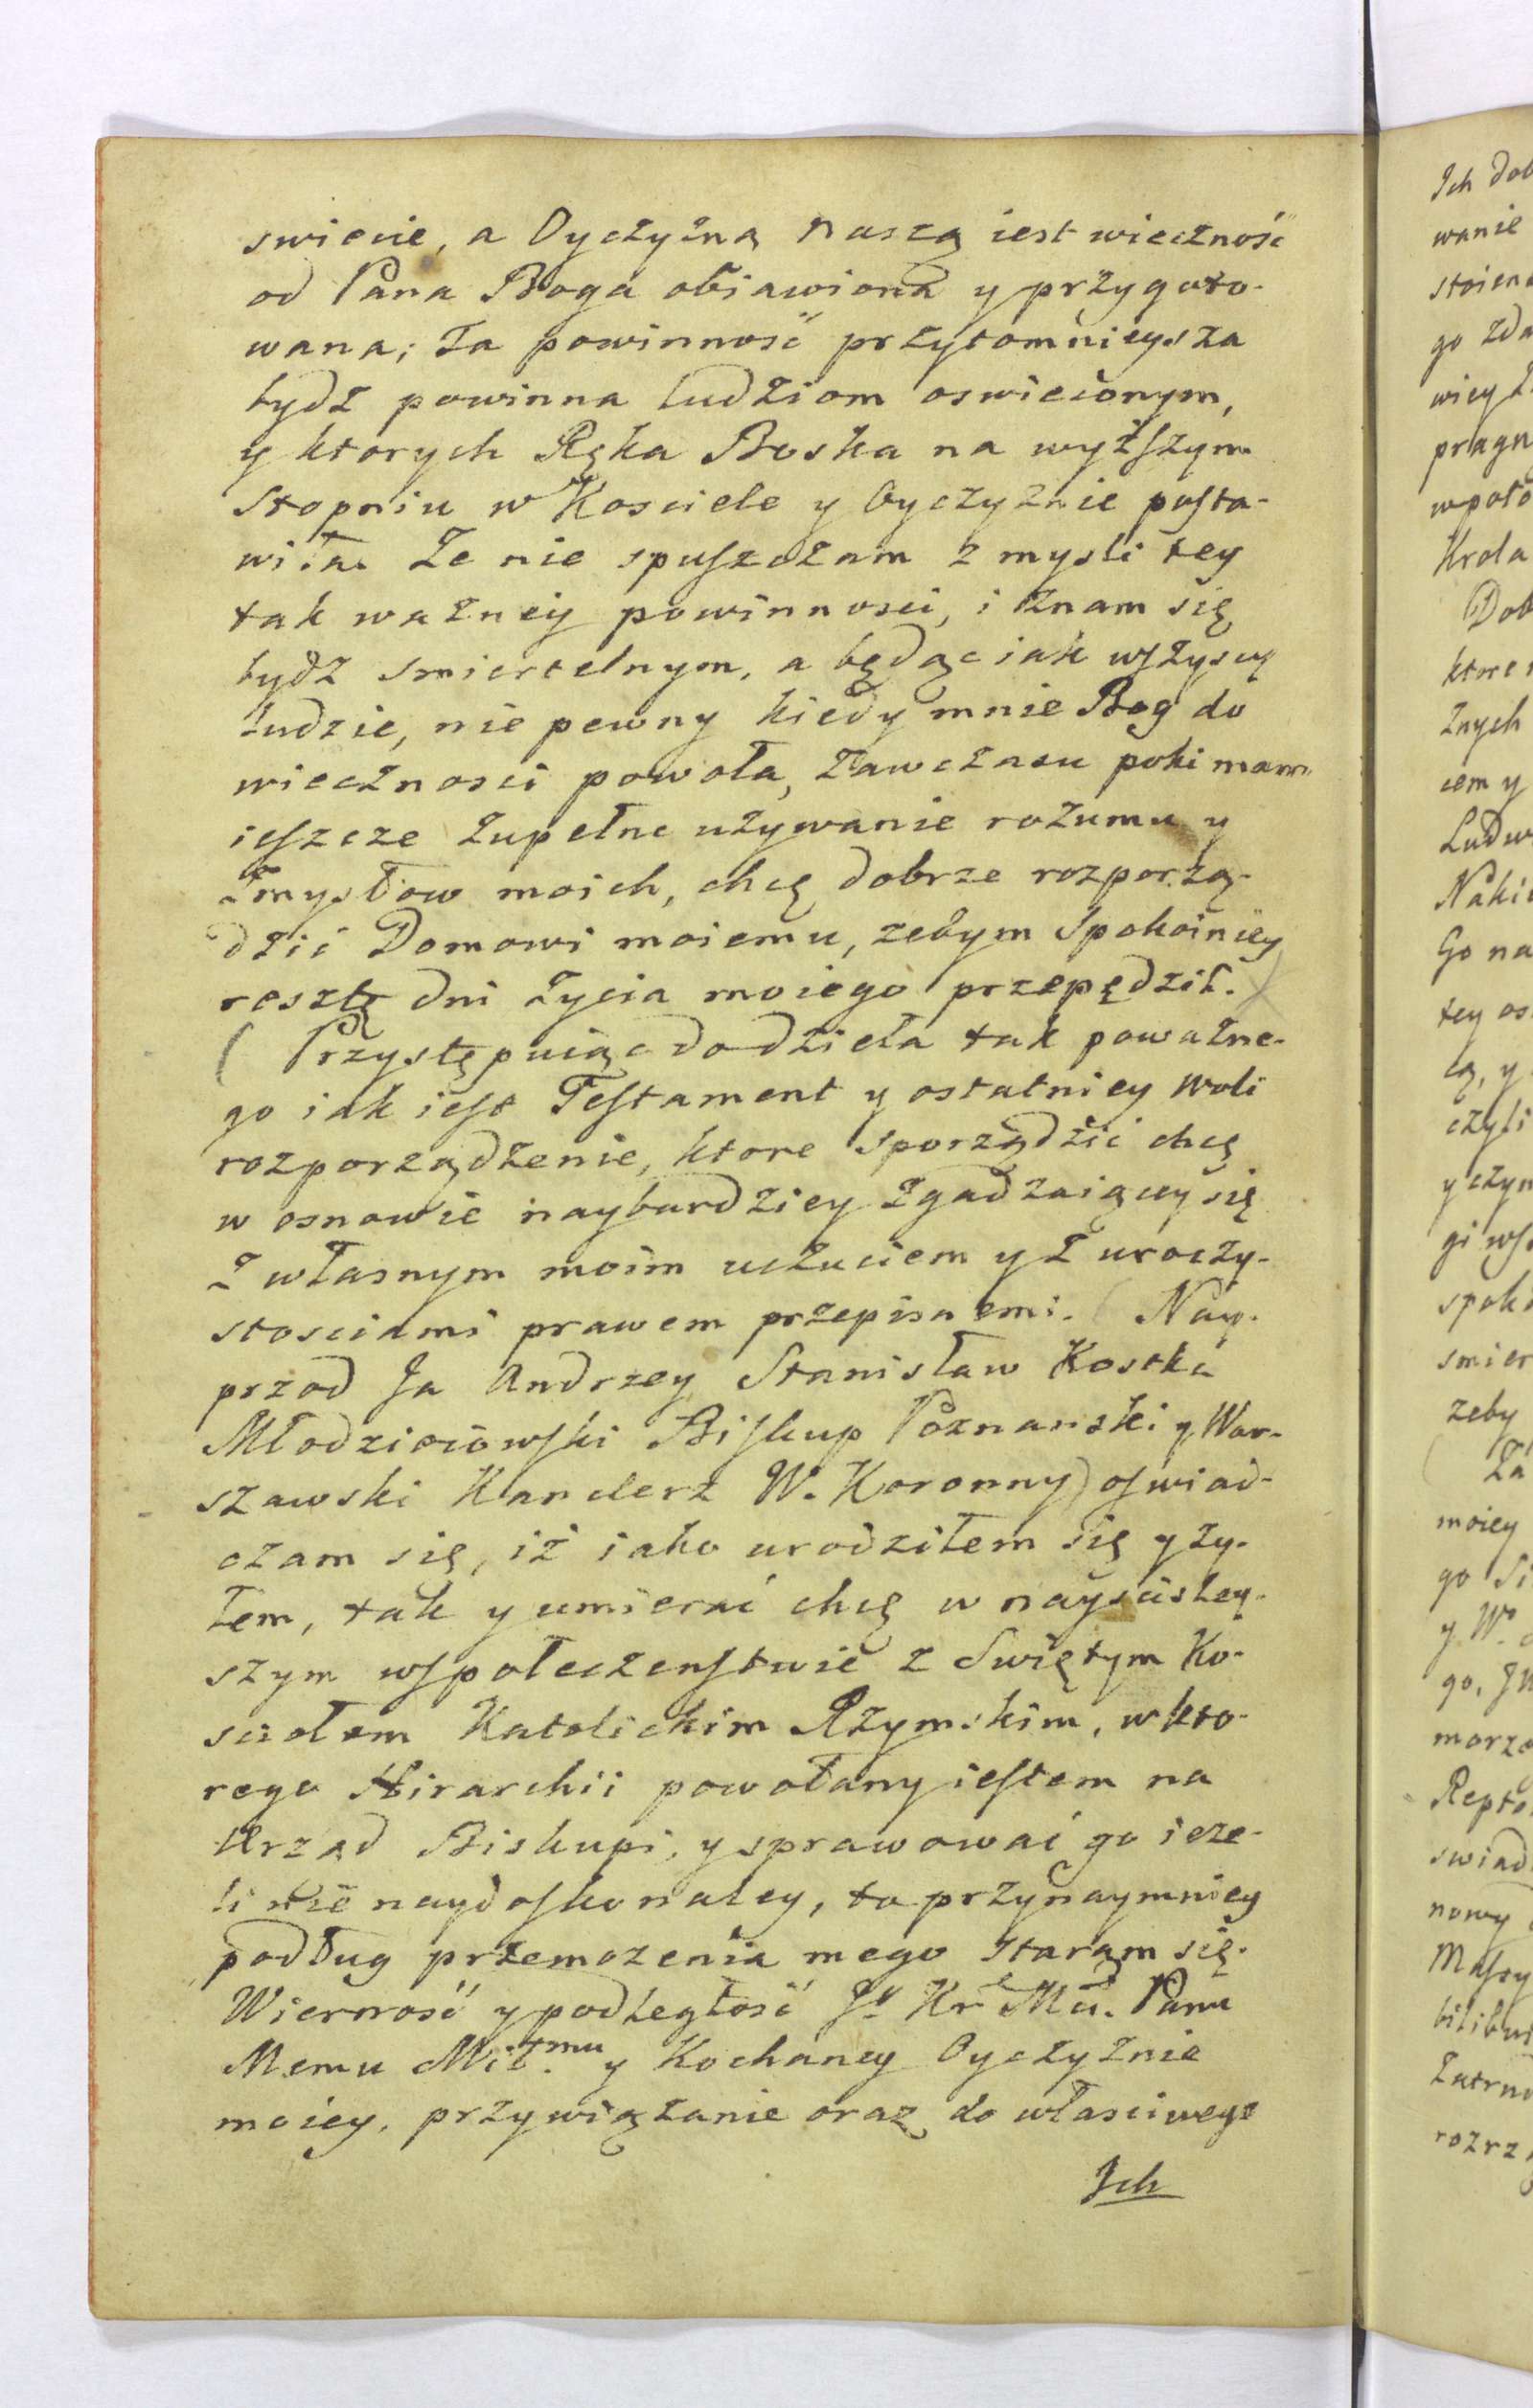 swiecie, a Oyczyzną Naszą iest wieczność
od Pana Boga obiawiona y przygoto-
wana; Ta powinność przytomnieysza
bydz powinna ludziom oswieconym,
y ktorych Ręka Boska na wyższym
Stopniu w Kosciele y Oyczyznie posta-
wiła. Ze nie spuszczam z mysli tey
tak ważney powinnosci, i znam się
bydz smiertelnym, a będąc iak wszyscy
ludzie, nie pewny kiedy mnie Bog do
wiecznosci powoła, zawczasu poki mam
ieszcze zupełne używanie rozumu y
zmysłow moich, chcę dobrze rozporzą-
dzić Domowi moiemu, zebym Spokoiniey
resztę dni życia moiego przepędził.
( Przystępuiąc do dzieła tak poważne-
go iak iest Testament y ostatniey woli
rozporządzenie, ktore sporządzić chcę
w osnowie naybardziey zgadzaiącey się
z własnym moim uczuciem y z uroczy-
stosciami prawem przepisanemi. ( Nay-
przod Ja Andrzey Stanisław Kostka
Młodzieiowski Biskup Poznanski y War-
szawski Kanclerz W. Koronny) oswiad-
czam się, iż iako urodziłem się y ży-
łem, tak y umierać chcę w nayscisley-
szym wspołeczenstwie z Swiętym Ko-
sciołem Katolickim Rzymskim, w kto-
rego Hirarchii powołany iestem na
Urząd Biskupi, y sprawować go ieże-
li nie naydoskonaley, to przynaymniey
podług przemożenia mego staram się.
Wierność y podległość Jo Kr Mci. Panu
Memu Miłmu y Kochaney Oyczyznie
moiey, przywiązanie oraz do własciwego
Ich
Ich dob
wanie
stoien
go zda
wicy
pragn
wpoło
Krola
Dob
ktore
żnych
cem y
Ludw
Naki
Go na
tey os
cą, y
czyli
y czyn
gi ws
spoko
smier
zeby
( Za
moiey
go Si
y W.
go, J
marza
Repto
swiad
nowy
Massy
bilibu
Zatru
rozrz